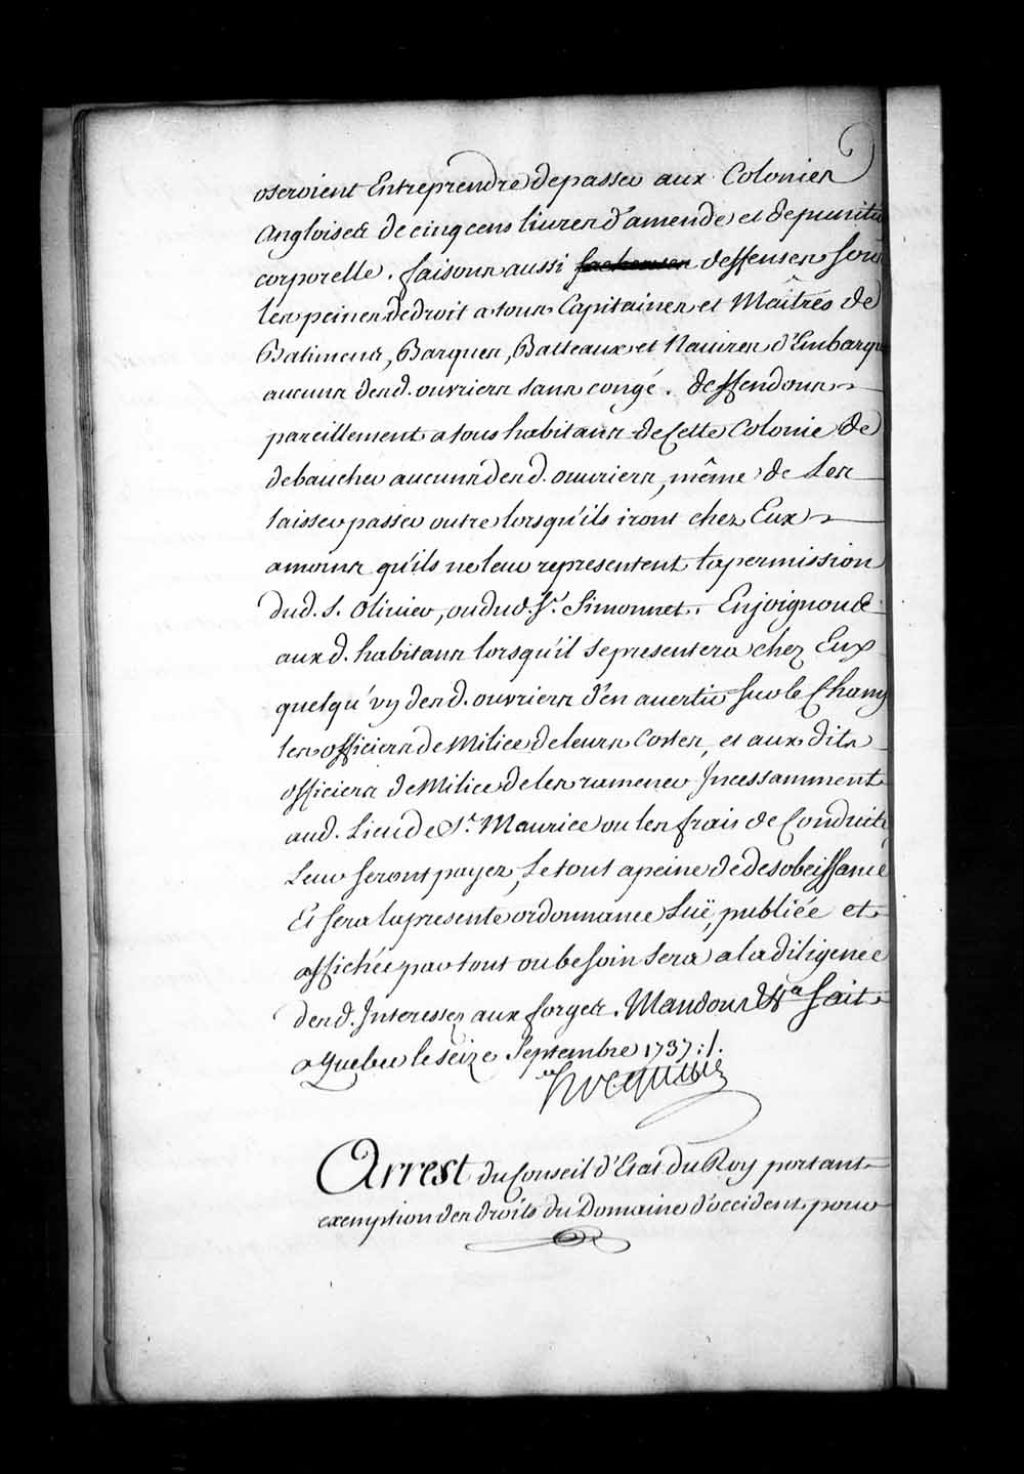 oseroient Entreprendre depasser aux Colonies
Angloises de cinq cens livres d'amende et depunition
corporelle. faisons aussi deffenses sous
les peines de droit a tous Capitaines et Maîtres de
Batimens, Barques, Batteaux et Navires d'Embarquer
aucuns desd. ouvriers sans congé. deffendons
pareillement a tous habitans de Cette Colonie de
debaucher aucuns desd. ouvriers, même de Les
laisser passer outre lorsqu'ils iront chez Eux
amoins qu'ils ne leur representent la permission
dud. S. Olivier, ou dud. Sr. Simonnet. Enjoignons
aux d. habitans lorsqu'il se presentera chez Eux
quelqu'vn desd. ouvriers d'en avertir sur le Champ
les officiers de Milice de leurs Costes, et aux dits
officiers de Milice de les ramener Incessamment
aud. Lieu de St. Maurice ou les frais de Conduite
Leur seront payez, Le tout a peine de desobeissance
Et sera la presente ordonnance Luë, publiée et
affichée par tout ou besoin sera a la diligence
desd. Interessez aux forges. Mandons &a fait
a Quebec le seize Septembre 1737 :/.
Hocquart
Arrest du Conseil d'Etat du Roy portant
exemption des droits du Domaine d'occident pour